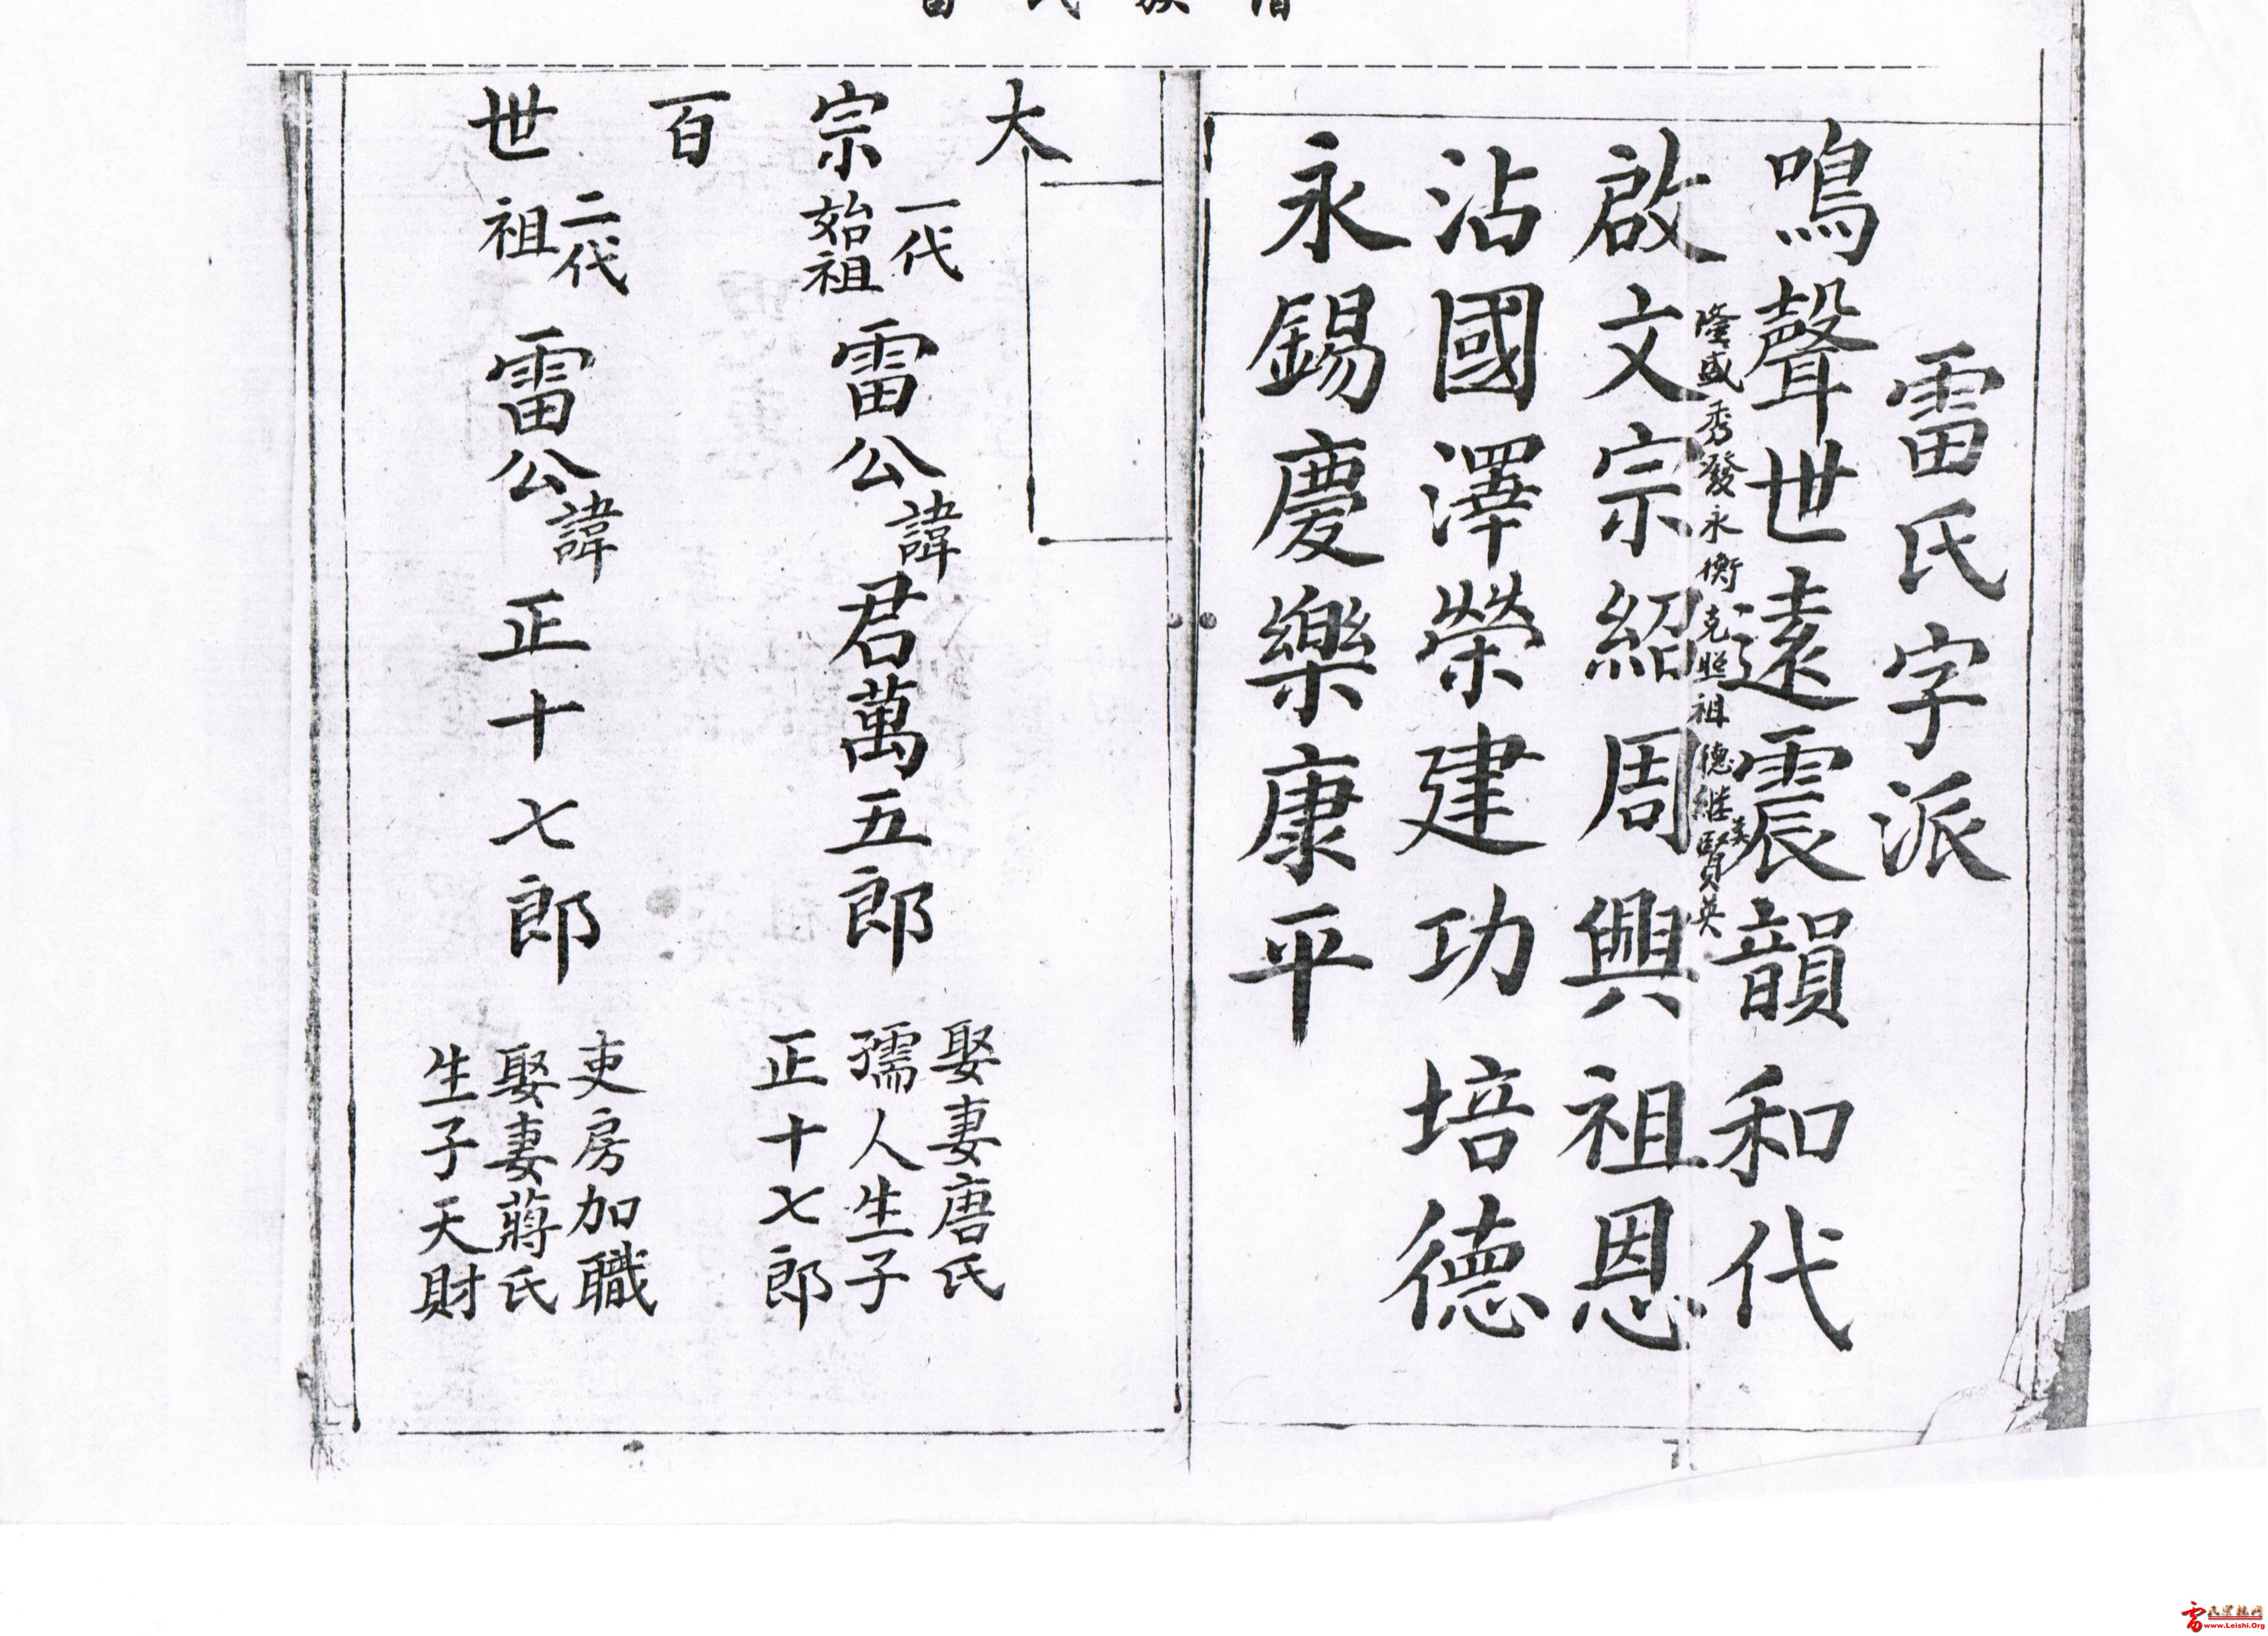 雷氏字派
鳴聲世遠震韻和代
隆盛秀發永衡克照祖德继賢英
美
啟文宗紹周興祖恩
沾國澤榮建功培德
永錫慶樂康平
大宗百世
一代
始祖
雷公諱君萬五郎
娶妻唐氏
孺人生子
正十七郎
二代
祖
雷公諱正十七郎
吏房加職
娶妻蔣氏
生子天財
www.Leishi.Org